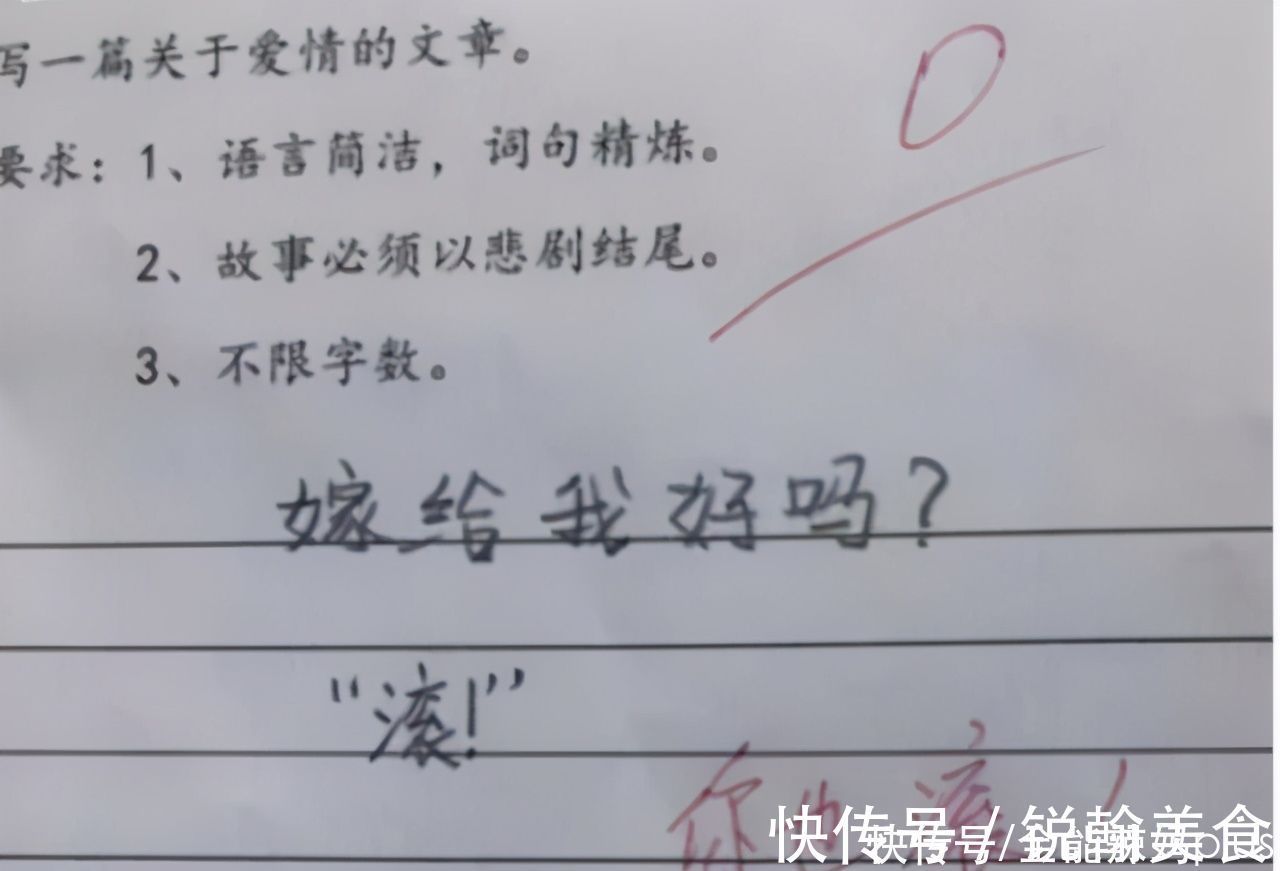 写一篇关于爱情的文章。
0
要求：1、语言简洁，词句精炼。
2、故事必须以悲剧结尾。
3、不限字数。
嫁给我好吗？
“滚！”
你也滚！
快传号/锐翰美食
快传号/